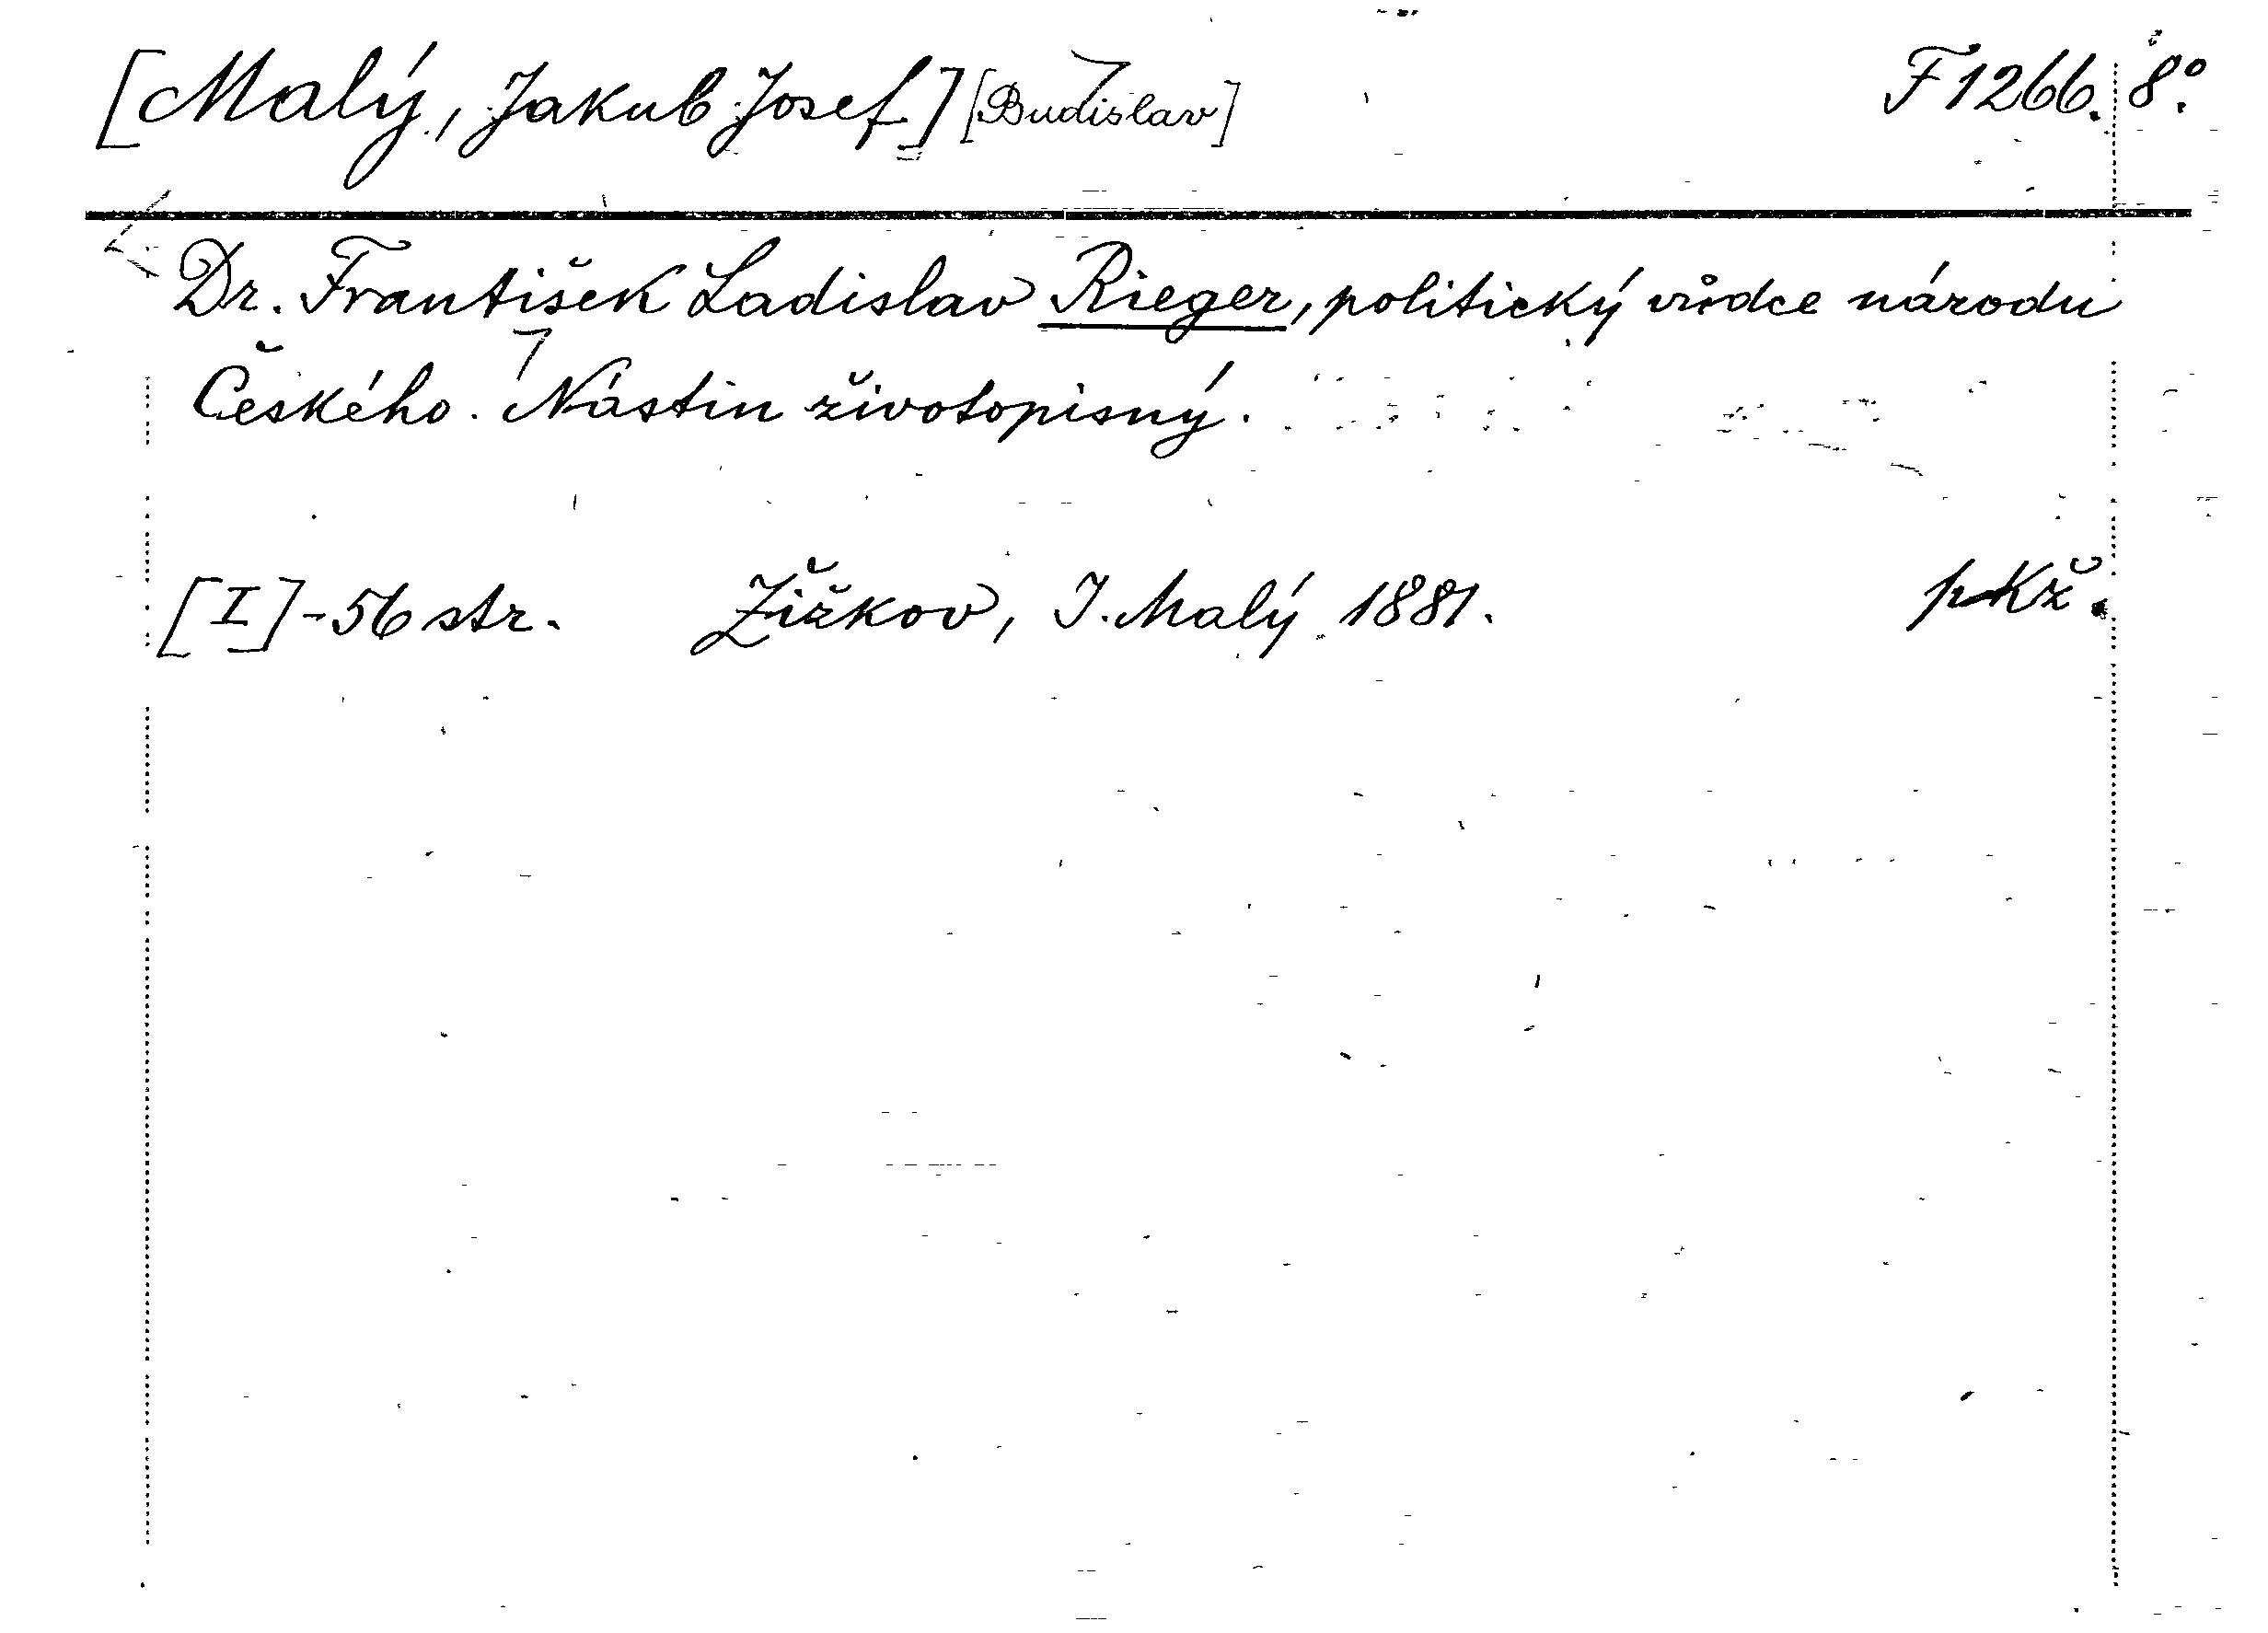 [Malý, Jakub Josef] [Budislav] F 1266. 8°.
Dr. František Ladislav Rieger, politický vůdce národu
Českého. Nástin životopisný.
[I]-56 str. Žižkov, J. Malý 1881. pKž.